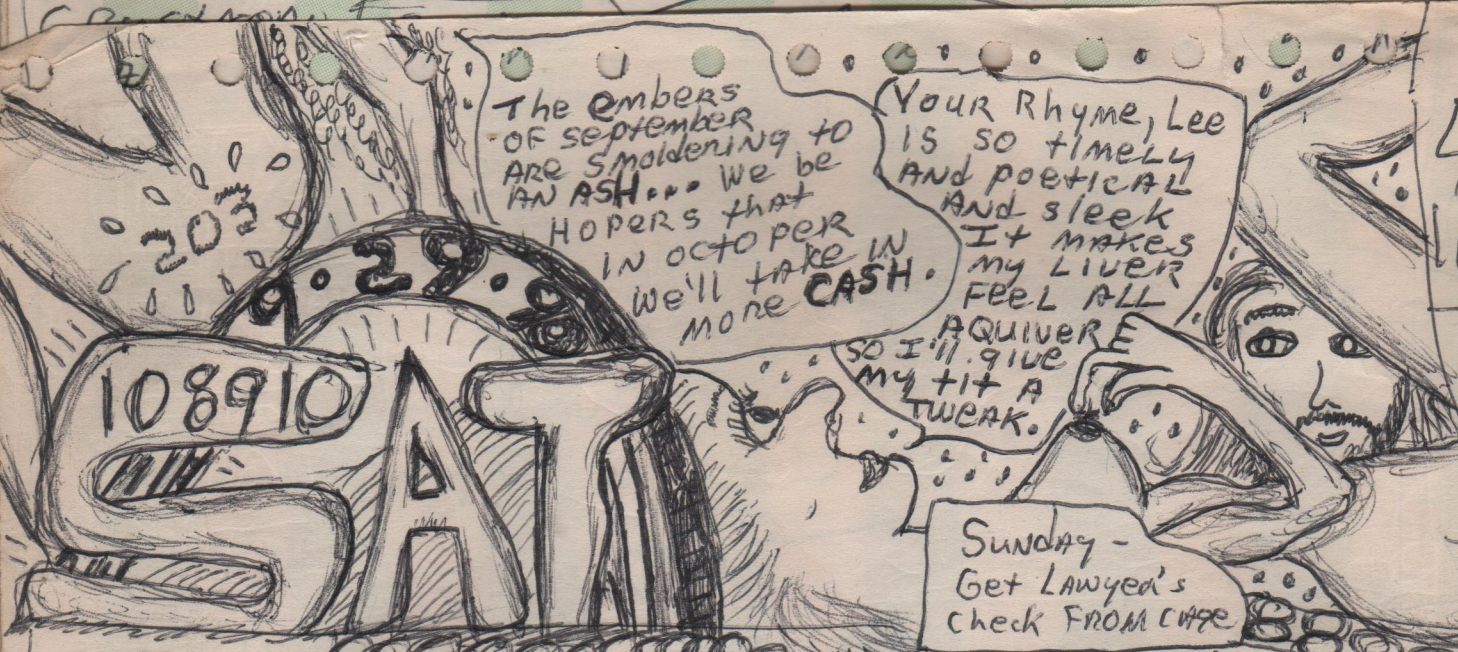 203
9.29.90
108910
SAT
The embers
OF September
ARE Smoldening to
AN ASH... We be
HOPERS that
IN OCTOPER
We'll take IN
MORE CASH.
YOUR Rhyme, Lee
IS SO timely
AND poetical
And sleek
It makes
my LIVER
FEEL ALL
AQUIVERE
SO I'll give
my tit A
TWEAK.
Sunday -
Get LAWyer's
Check FROM CAGE